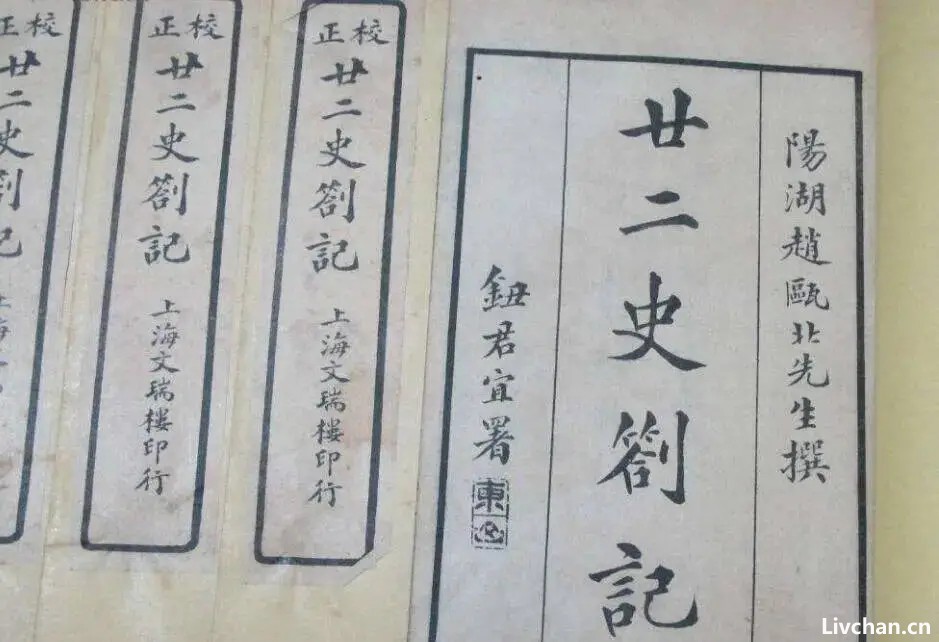 陽湖趙甌北先生撰
廿二史劄記
鈕君宜署
校正
廿二史劄記
上海文瑞樓印行
校正
廿二史劄記
上海文瑞樓印行
校正
廿二史劄記
Livchan.cn